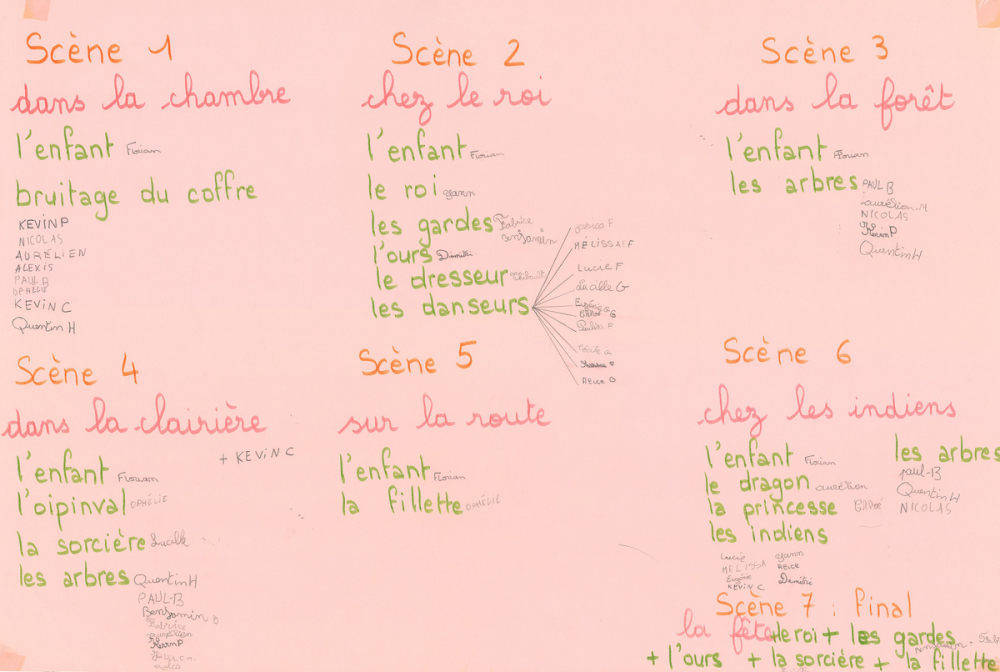 Scène 1
dans la chambre
l'enfant Florian
bruitage du coffre
KEVIN P
NICOLAS
AURÉLIEN
ALEXIS
PAUL B
OPHÉLIE
KEVIN C
Quentin H
Scène 2
chez le roi
l'enfant Florian
le roi Yoann
les gardes Fabrice
Benjamin
l'ours Dimitri
le dresseur
les danseurs
Jessica F
MELISSA F
Lucie F
G
Eugénie G
G
Pauline F
ALICE D
Scène 3
dans la forêt
l'enfant Florian
les arbres PAUL B
Aurélien M
NICOLAS
Kevin P
Quentin H
Scène 4
dans la clairière
+ KEVIN C
l'enfant Florian
l'oipinval OPHÉLIE
la sorcière
les arbres Quentin H
PAUL-B
Benjamin
Fabrice
Aurélien
Kevin P
Scène 5
sur la route
l'enfant Florian
la fillette OPHÉLIE
Scène 6
chez les indiens
l'enfant Florian
le dragon aurélien
la princesse
les indiens
Lucie
MELISSA
Eugénie
KEVIN C
Yoann
ALICE
Dimitri
les arbres
paul-B
Quentin H
NICOLAS
Scène 7 : Final
la fête le roi + les gardes
+ l'ours + la sorcière + la fillette